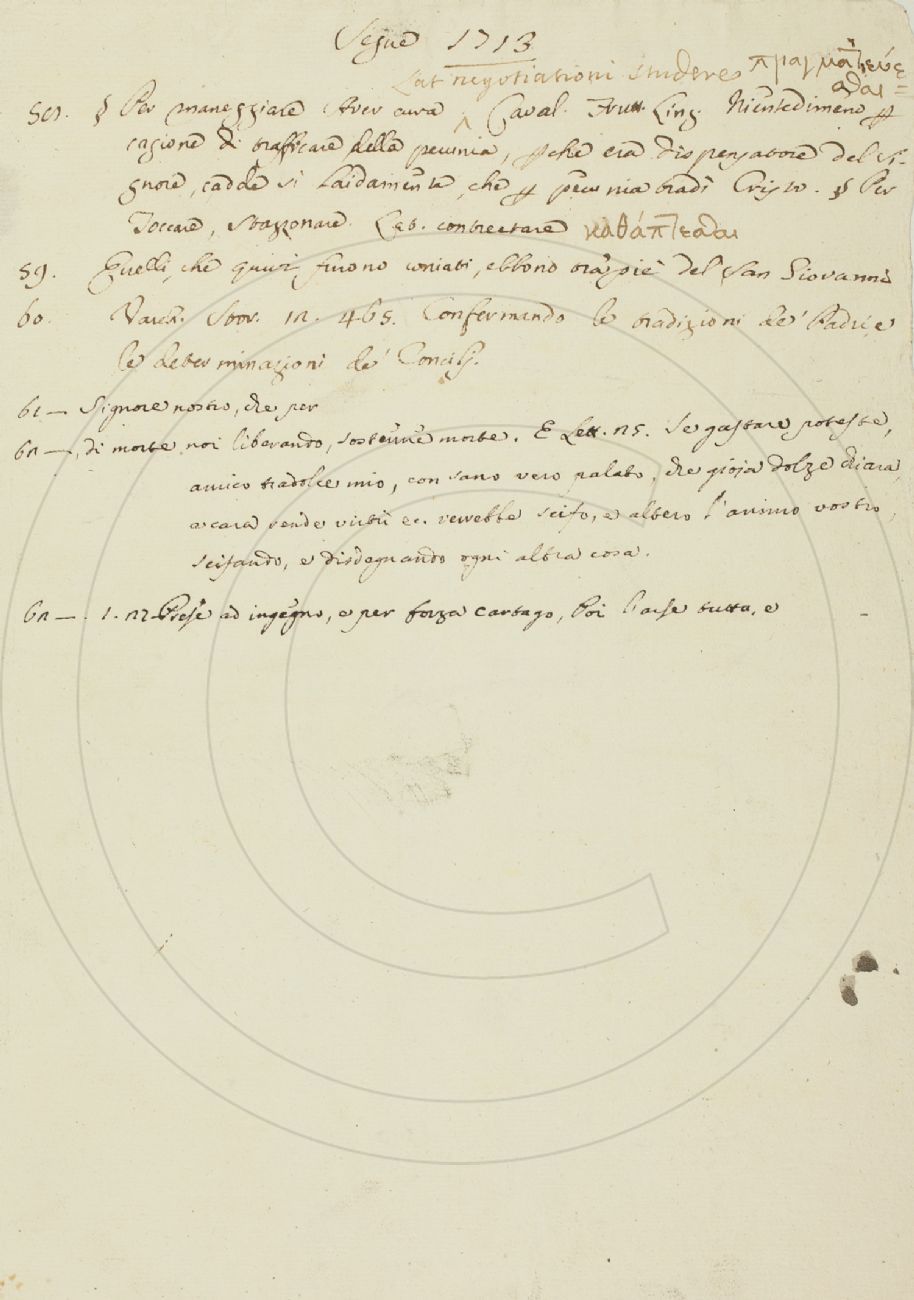 Segue 1713
Lat negotiationi studere πραγματεύε
σθαι =
§ Per maneggiare Aver cura ^ Caval. Frutt. Ling. Nientedimeno p
cagione di trafficare della pecunia, pche era dispensatore del Si-
gnore, cadde sì laidamente, che p pecunia tradì Cristo. § Per
Toccare, Stazzonare. Lat. contrectare καθάπτεσθαι
59. Quelli, che quivi furono coniati, ebbono tra' piè del San Giovanni
60. Varch. Stor. 12. 465. Confermando le tradizioni de' Padri, e
le determinazioni de' Concilj.
61 — Signore nostro, che per
62 — , di morte noi liberando, sostenne morte. E Lett. 25. Se gustare poteste,
amico tradolce mio, con sano vero palato, che gioja dolze chiara,
e cara rende virtù ec. verrebbe scifo, e altero l'animo vostro,
scifando, e disdegnando ogni altra cosa.
62 — . 1. 127 Prese ad ingegno, e per forza Cartago, Poi l'arse tutta, e